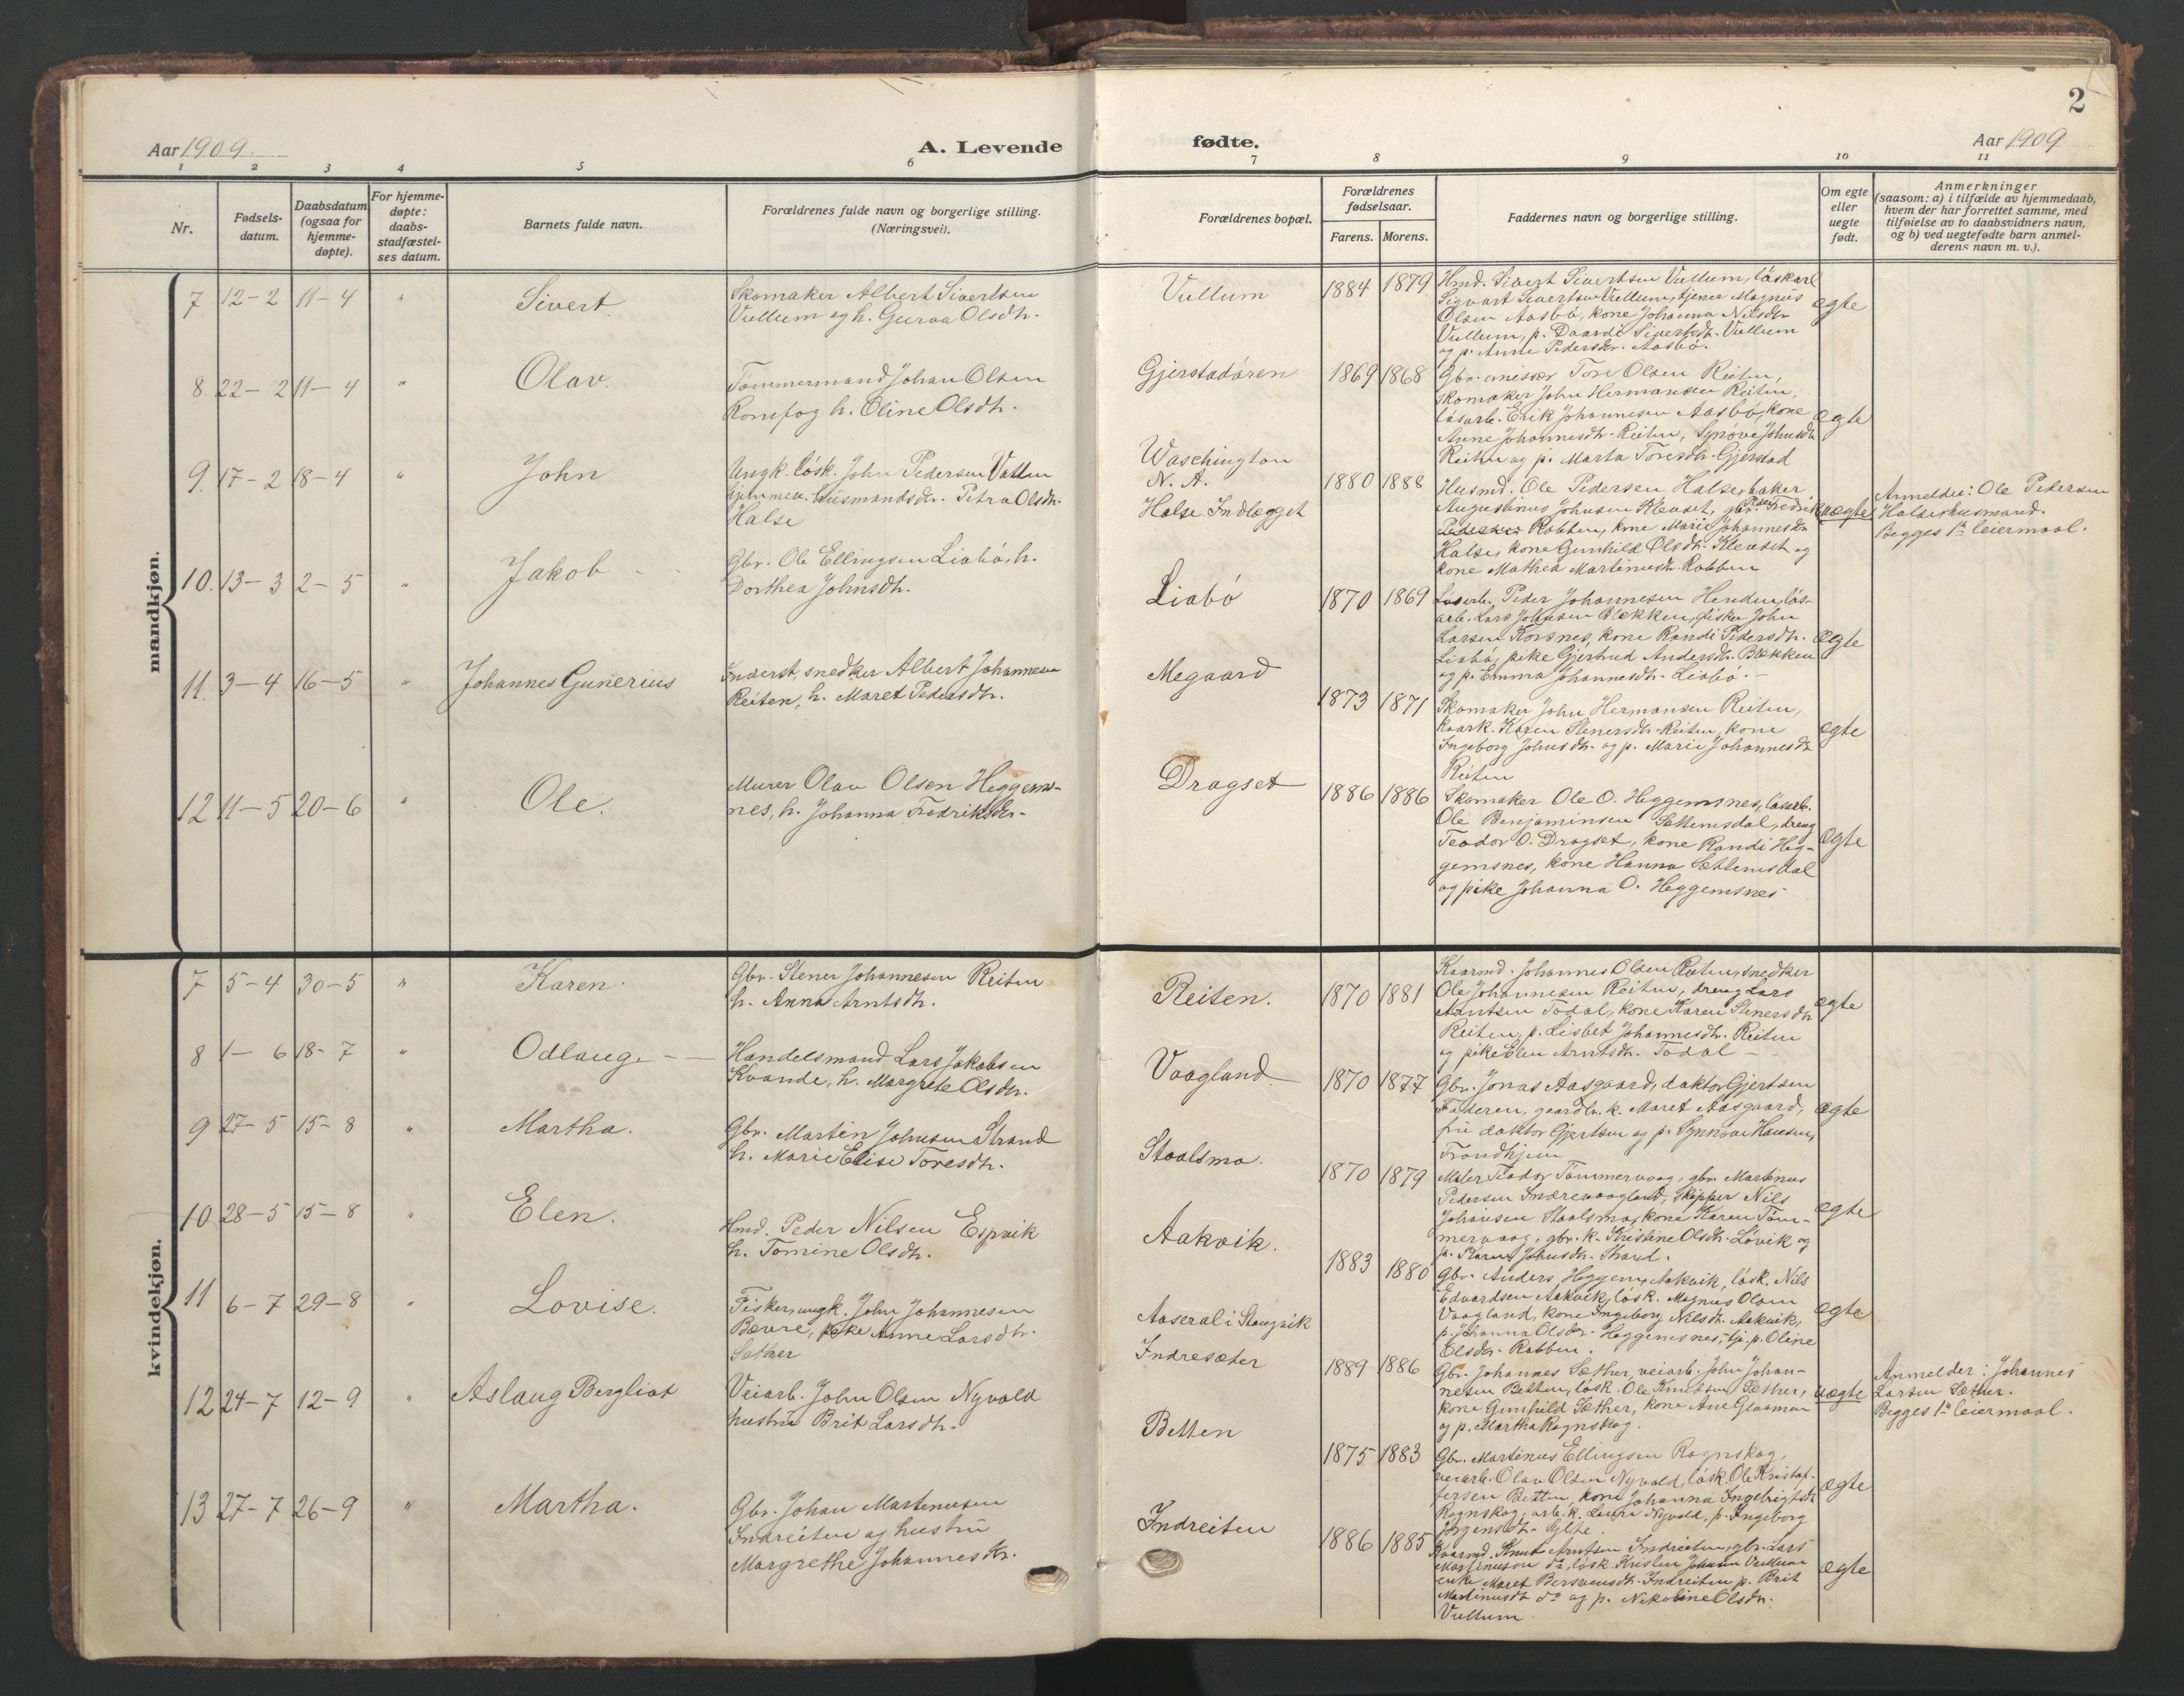 2
Aar 1909. A. Levende fødte. Aar 1909
1 2 3 4 5 6 7 8 9 10 11
Nr.
Fødsels-
datum.
Daabsdatum
(ogsaa for
hjemme-
døpte).
For hjemme-
døpte:
daabs-
stadfæstel-
ses datum.
Barnets fulde navn.
Forældrenes fulde navn og borgerlige stilling.
(Næringsvei).
Forældrenes bopæl.
Forældrenes
fødselsaar.
Farens. Morens.
Faddernes navn og borgerlige stilling.
Om egte
eller
uegte
født.
Anmerkninger
(saasom: a) i tilfælde av hjemmedaab,
hvem der har forrettet samme, med
tilføielse av to daabsvidners navn,
og b) ved uegtefødte barn anmel-
derens navn m. v.).
mandkjøn.
7 12-2 11-4 " Sivert.
Skomaker Albert Sivertsen
Vullum og h. Guroa Olsdtr.
Vullum 1884 1879
Hmd. Sivert Sivertsen Vullum, løskarl
Sigvart Sivertsen Vullum, tjener Magnus
Olsen Aasbø, kone Johanna Nilsdtr
Vullum, p. Daardi Sivertsdtr. Vullum
og p. Anne Pedersdtr. Aasbø.
egte
8. 22-2 11-4 " Olav.
Tømmermand Johan Olsen
Romfog h. Oline Olsdtr.
Gjerstadøren 1869 1868
Gbr. Tore Olsen Reiten,
skomaker John Hermansen Reiten,
løsarb. Erik Johannesen Aasbø, kone
Anne Johannesdtr. Reiten, Synøve Johnsdtr
Reiten og p. Marta Toresdtr. Gjerstad
egte
9. 17-2 18-4 " John
Ungk. løsk. John Pedersen Vatten
hjemmev. husmandsdtr. Petra Olsdtr.
Halse
Waschington
N. A.
Halse Indlægget
1880 1888
Husmd. Ole Pedersen Halse, baker
Augustinus Johnsen Klevset, gbr. Peder Fredrik
Pedersen Rabben, kone Marie Johannesdtr
Halse, kone Gunhild Olsdtr. Klevset og
kone Mathea Martinusdtr. Rabben
uegte
Anmelder: Ole Pedersen
Halse, husmand.
Begges 1ste leiermaal.
10. 13-3 2-5 " Jakob
Gbr. Ole Ellingsen Liabø, h.
Dorthea Johnsdtr.
Liabø 1870 1869
Løsarb. Peder Johannesen Henden, løs-
arb. Lars Johnsen Bækken, fisker John
Larsen Korsnes, kone Randi Pedersdtr.
Liabø, pike Gjertrud Andersdtr. Bækken
og p. Emma Johannesdtr. Liabø.
Egte
11. 3-4 16-5 " Johannes Gunerius
Inderst, snedker Albert Johannesen
Reiten, h. Maret Pedersdtr.
Megaard 1873 1871
Skomaker John Hermansen Reiten,
kaark. Karen Stenersdtr. Reiten, kone
Ingeborg Johnsdtr. og p. Marie Johannesdtr
Reiten
egte
12 11-5 20-6 " Ole.
Murer Olav Olsen Heggems-
nes, h. Johanna Fredriksdtr.
Dragset 1886 1886
Skomaker Ole O. Heggemsnes, løsarb.
Ole Benjaminsen Settemsdal, dreng
Teodor O. Dragset, kone Randi Heg-
gemsnes, kone Hanna Settemsdal
og pike Johanna O. Heggemsnes
Egte
kvindekjøn.
7 5-4 30-5 " Karen.
Gbr. Stener Johannesen Reiten
h. Anna Arntsdtr.
Reiten. 1870 1881
Kaarmd. Johannes Olsen Reiten, snedker
Ole Johannesen Reiten, dreng Lars
Arntsen Todal, kone Karen Stenersdtr
Reiten, p. Lisbet Johannesdtr. Reiten
og pike Elen Arntsdtr. Todal
egte
8 1-6 18-7 " Odlaug
Handelsmand Lars Jakobsen
Kvande, h. Margrete Olsdtr.
Vaagland 1870 1877
Gbr. Jonas Aasgaard, doktor Gjertsen
Faderen, gaardbr. k. Maret Aasgaard,
fru doktor Gjertsen og p. Synnøve Hansen,
Trondhjem
egte
9 27-5 15-8 " Martha.
Gbr. Martin Johnsen Strand
h. Marie Elise Toresdtr.
Staalsmo. 1870 1879
Maler Teodor Tømmervaag, gbr. Martinus
Pedersen Indrevaagland, skipper Nils
Johansen Staalsmo, kone Karen Tøm-
mervaag, gbr. k. Kristine Olsdtr. Løvik og
p. Karen Johnsdtr. Strand.
egte
10. 28-5 15-8 " Elen.
Hmd. Peder Nilsen Espvik
h. Tomine Olsdtr.
Aakvik. 1883 1880
Gbr. Anders Heggem, Aakvik, løsk. Nils
Edvardsen Aakvik, løsk. Magnus Olsen
Vaagland, kone Ingeborg Nilsdtr. Aakvik,
p. Johanna Olsdtr. Heggemsnes, tj. p. Oline
Olsdtr. Rabben.
egte
11 6-7 29-8 " Lovise.
Fisker, ungk. John Johannesen
Bævre, pike Anne Larsdtr.
Sæther
Aaseral i Stangvik
Indresæter
1889 1886
Gbr. Johannes Sæther, veiarb. John Johan-
nesen Betten, løsk. Ole Knudsen Sæther,
kone Gunhild Sæther, kone Ane Glaamen
og p. Martha Rognskog.
uegte
Anmelder: Johannes
Larsen Sæther.
Begges 1ste leiermaal.
12 24-7 12-9 " Aslaug Bergliot
Veiarb. John Olsen Nyvold
hustru Brit Larsdtr.
Betten 1875 1883
Gbr. Martinus Ellingsen Rognskog,
veiarb. Olav Olsen Nyvold, løsk. Ole Kristof-
fersen Betten, kone Johanna Ingebrigtsdtr
Rognskog, arb. k. Laura Nyvold, p. Ingeborg
Jørgensdtr. Sylte.
egte
13 27-7 26-9 " Martha.
Gbr. Johan Martinusen
Indreiten og hustru
Margrethe Johannesdtr.
Indreiten 1886 1885
Kaarmd. Knut Arntsen Indreiten, gbr. Lars
Martinusen do, løsk. Kristen Johnsen Vullum
enke Maret Bersvendsdtr. Indreiten p. Brit
Martinusdtr do og p. Nekoline Olsdtr.
Vullum
egte